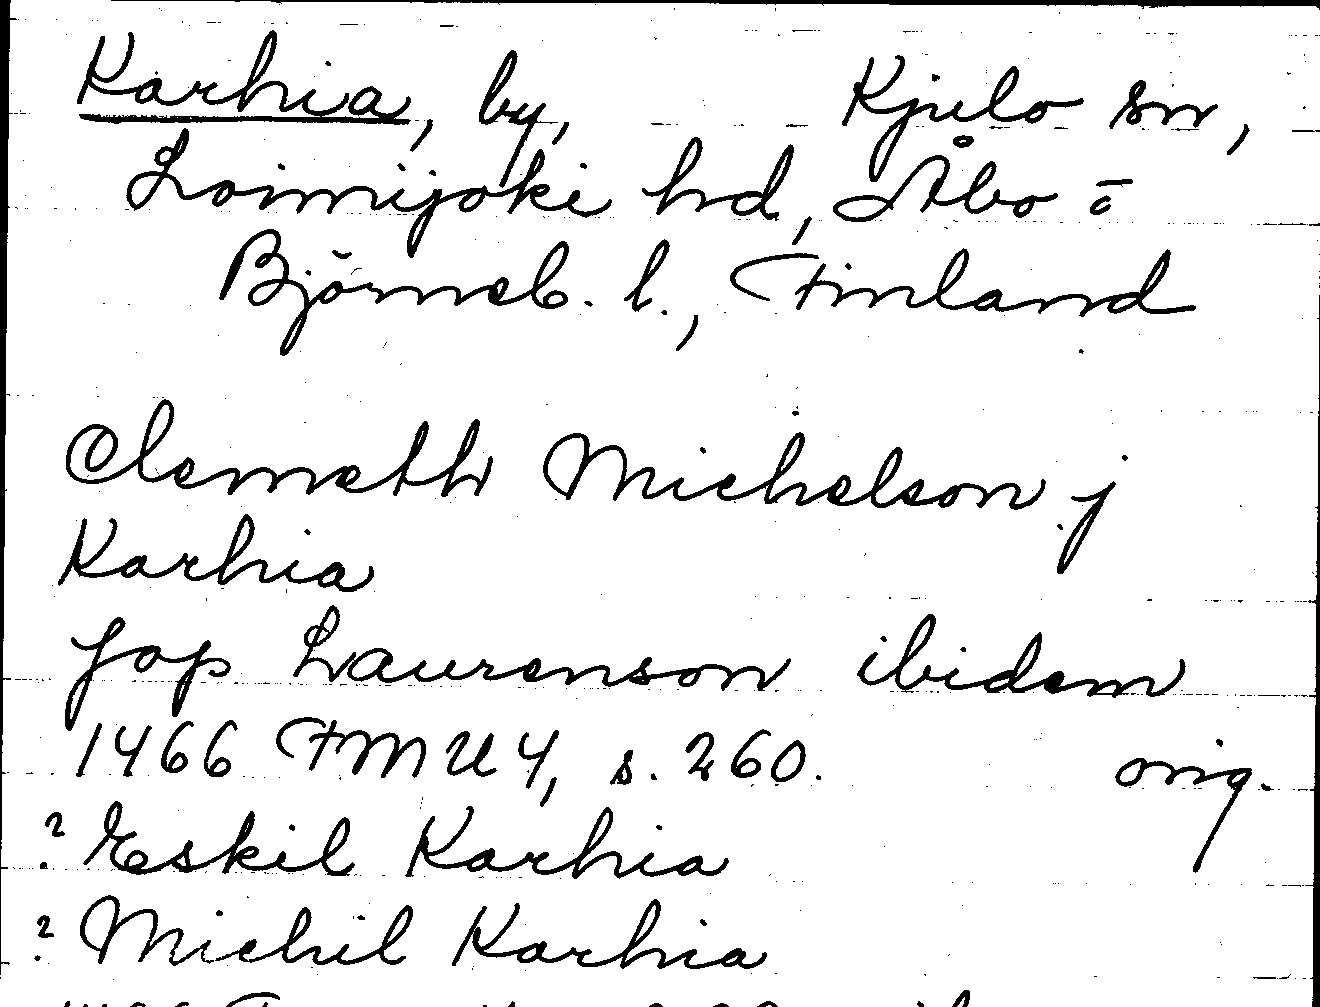 Karhia, by, Kjulo sn,
Loimijoki hd, Åbo o
Björneb. l., Finland
Clemeth Michelson j
Karhia
Jop Laurenson ibidem
1466 FMU 4, s. 260. orig.
? Eskil Karhia
? Michil Karhia